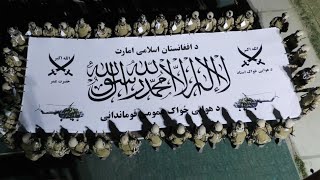 د افغانستان اسلامی امارت
الله اکبر
الله اکبر
لا إله إلا الله محمد رسول الله
د هوايي ځواک عمومي قوماندانی